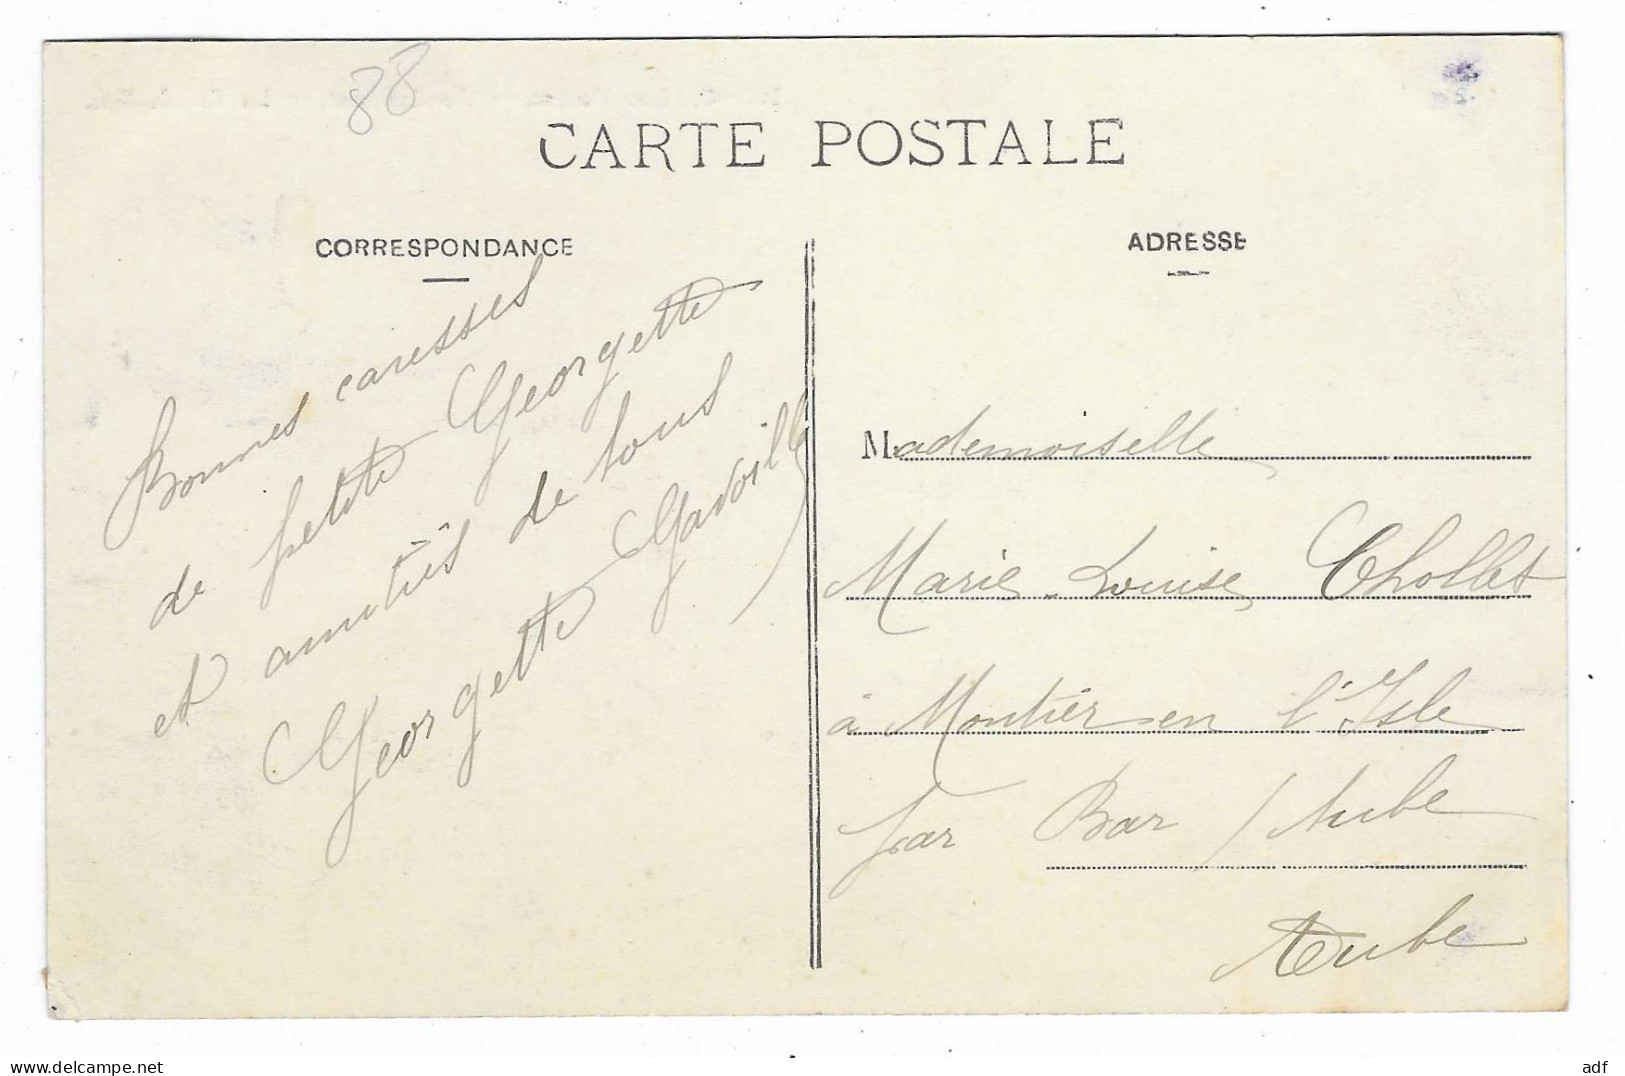 88
CARTE POSTALE
CORRESPONDANCE
Bonnes caresses
de petite Georgette
et amitiés de tous
Georgette Gavoille
ADRESSE
Mademoiselle
Marie-Louise Chollet
à Montier en l'Isle
par Bar / Aube
Aube
https://www.delcampe.net
adf